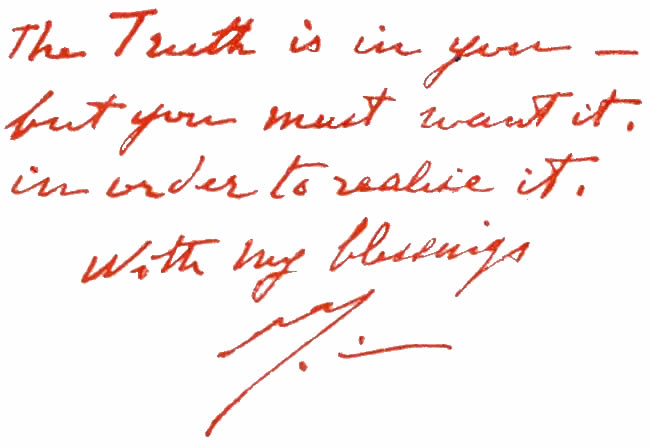 The Truth is in you —
but you must want it.
in order to realise it.
With my blessings